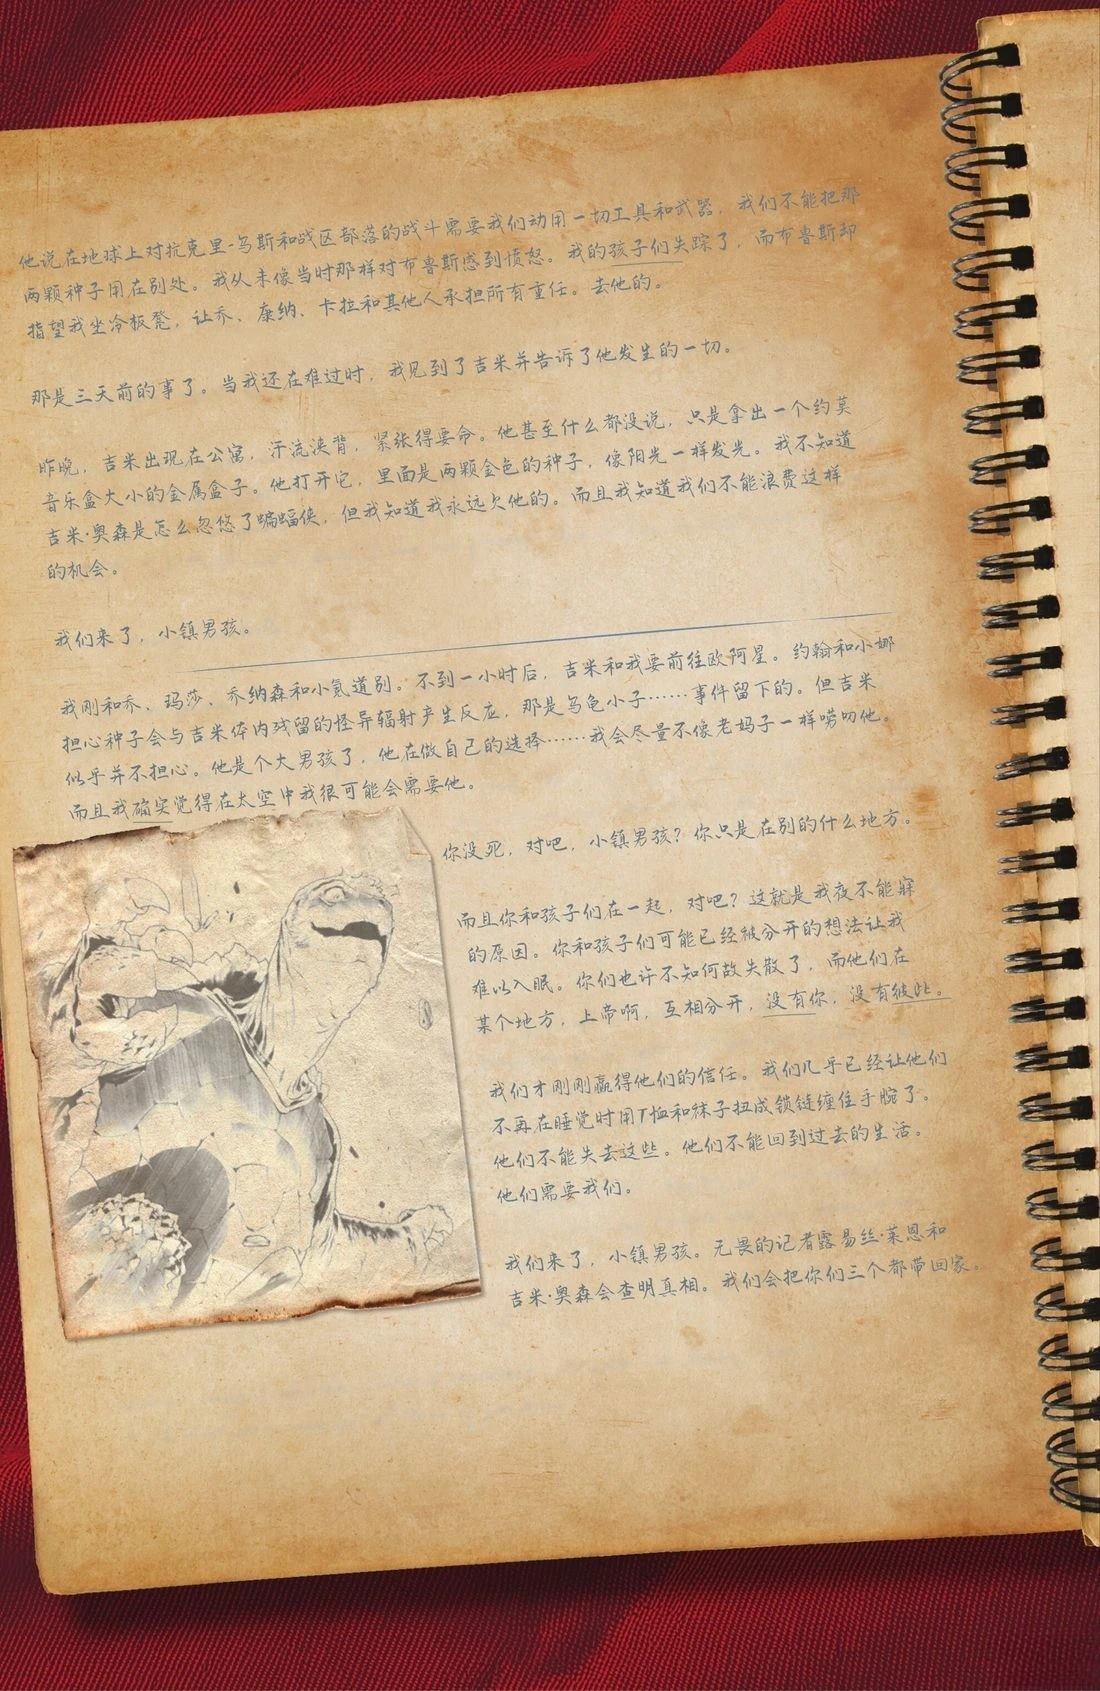 他说在地球上对抗克里-乌斯和战区部落的战斗需要我们动用一切工具和武器，我们不能把那
两颗种子用在别处。我从未像当时那样对布鲁斯感到愤怒。我的孩子们失踪了，而布鲁斯却
指望我坐冷板凳，让乔、康纳、卡拉和其他人承担所有重任。去他的。
那是三天前的事了。当我还在难过时，我见到了吉米并告诉了他发生的一切。
昨晚，吉米出现在公寓，汗流浃背，紧张得要命。他甚至什么都没说，只是拿出一个约莫
音乐盒大小的金属盒子。他打开它，里面是两颗金色的种子，像阳光一样发光。我不知道
吉米·奥森是怎么忽悠了蝙蝠侠，但我知道我永远欠他的。而且我知道我们不能浪费这样
的机会。
我们来了，小镇男孩。
我刚和乔、玛莎、乔纳森和小氪道别。不到一小时后，吉米和我要前往欧阿星。约翰和小娜
担心种子会与吉米体内残留的怪异辐射产生反应，那是乌龟小子……事件留下的。但吉米
似乎并不担心。他是个大男孩了，他在做自己的选择……我会尽量不像老妈子一样唠叨他。
而且我确实觉得在太空中我很可能会需要他。
你没死，对吧，小镇男孩？你只是在别的什么地方。
而且你和孩子们在一起，对吧？这就是我夜不能寐
的原因。你和孩子们可能已经被分开的想法让我
难以入眠。你们也许不知何故失散了，而他们在
某个地方，上帝啊，互相分开，没有你，没有彼此。
我们才刚刚赢得他们的信任。我们几乎已经让他们
不再在睡觉时用T恤和袜子扭成锁链缠住手腕了。
他们不能失去这些。他们不能回到过去的生活。
他们需要我们。
我们来了，小镇男孩。无畏的记者露易丝·莱恩和
吉米·奥森会查明真相。我们会把你们三个都带回家。